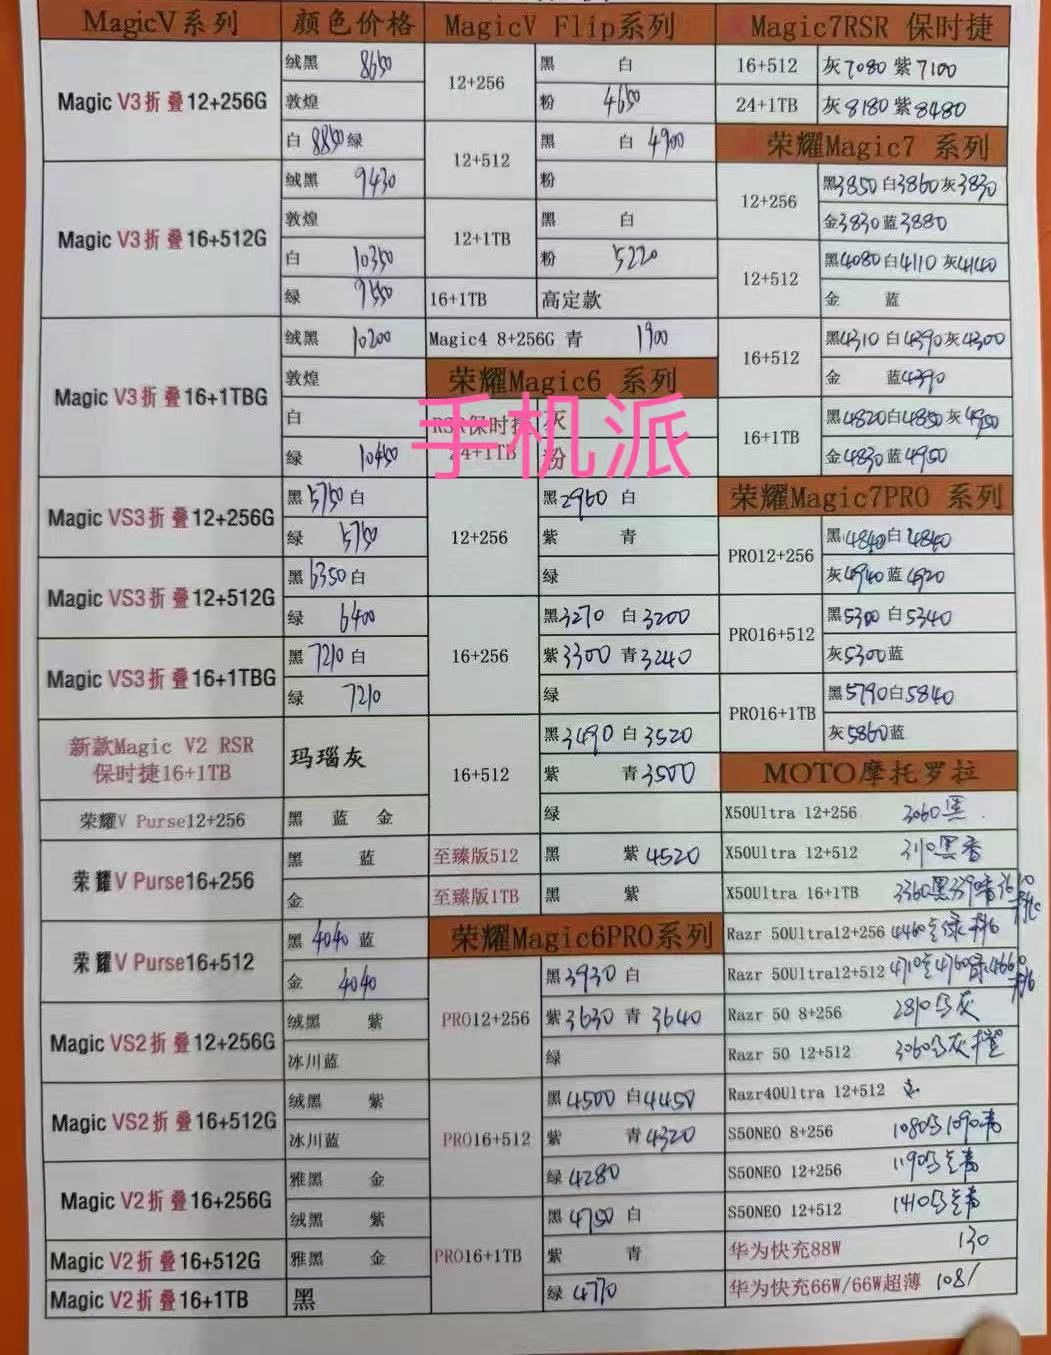 MagicV系列 颜色价格
Magic V3折叠12+256G
绒黑 8650
敦煌
白 8850 绿
Magic V3折叠16+512G
绒黑 9430
敦煌
白 10350
绿 9550
Magic V3折叠16+1TBG
绒黑 10200
敦煌
白
绿 10450
Magic VS3折叠12+256G
黑 5750 白
绿 5750
Magic VS3折叠12+512G
黑 6350 白
绿 6400
Magic VS3折叠16+1TBG
黑 7210 白
绿 7210
新款Magic V2 RSR
保时捷16+1TB
玛瑙灰
荣耀V Purse12+256
黑 蓝 金
荣耀V Purse16+256
黑 蓝
金
荣耀V Purse16+512
黑 4040 蓝
金 4040
Magic VS2折叠12+256G
绒黑 紫
冰川蓝
Magic VS2折叠16+512G
绒黑 紫
冰川蓝
Magic V2折叠16+256G
雅黑 金
绒黑 紫
Magic V2折叠16+512G
雅黑 金
Magic V2折叠16+1TB
黑
MagicV Flip系列
12+256
黑 白
粉 4650
12+512
黑 白 4900
粉
12+1TB
黑 白
粉 5220
16+1TB 高定款
Magic4 8+256G 青 1900
荣耀Magic6 系列
RSR保时捷
24+1TB
灰
粉
手机派
12+256
黑 2960 白
紫 青
绿
16+256
黑 3270 白 3200
紫 3300 青 3240
绿
16+512
黑 3490 白 3520
紫 青 3500
绿
至臻版512 黑 紫 4520
至臻版1TB 黑 紫
荣耀Magic6PRO系列
PRO12+256
黑 3930 白
紫 3630 青 3640
绿
PRO16+512
黑 4500 白 4450
紫 青 4320
绿 4280
PRO16+1TB
黑 4750 白
紫 青
绿 4770
Magic7RSR 保时捷
16+512 灰 7080 紫 7100
24+1TB 灰 8180 紫 8480
荣耀Magic7 系列
12+256
黑3850 白3860 灰3830
金3830 蓝3880
12+512
黑4080 白4110 灰4140
金 蓝
16+512
黑4310 白4390 灰4300
金 蓝4390
16+1TB
黑4820 白4850 灰4950
金4830 蓝4950
荣耀Magic7PRO 系列
PRO12+256
黑4840 白4840
灰4940 蓝4920
PRO16+512
黑5300 白5340
灰5300 蓝
PRO16+1TB
黑5790 白5840
灰5860 蓝
MOTO摩托罗拉
X50Ultra 12+256 3060黑
X50Ultra 12+512 3110黑
X50Ultra 16+1TB 3360黑
Razr 50Ultra12+256 4460
Razr 50Ultra12+512 4710 4760
Razr 50 8+256 2810 灰
Razr 50 12+512 3060 灰
Razr40Ultra 12+512
S50NEO 8+256 1080 1090
S50NEO 12+256 1190
S50NEO 12+512 1410
华为快充88W 130
华为快充66W/66W超薄 108/